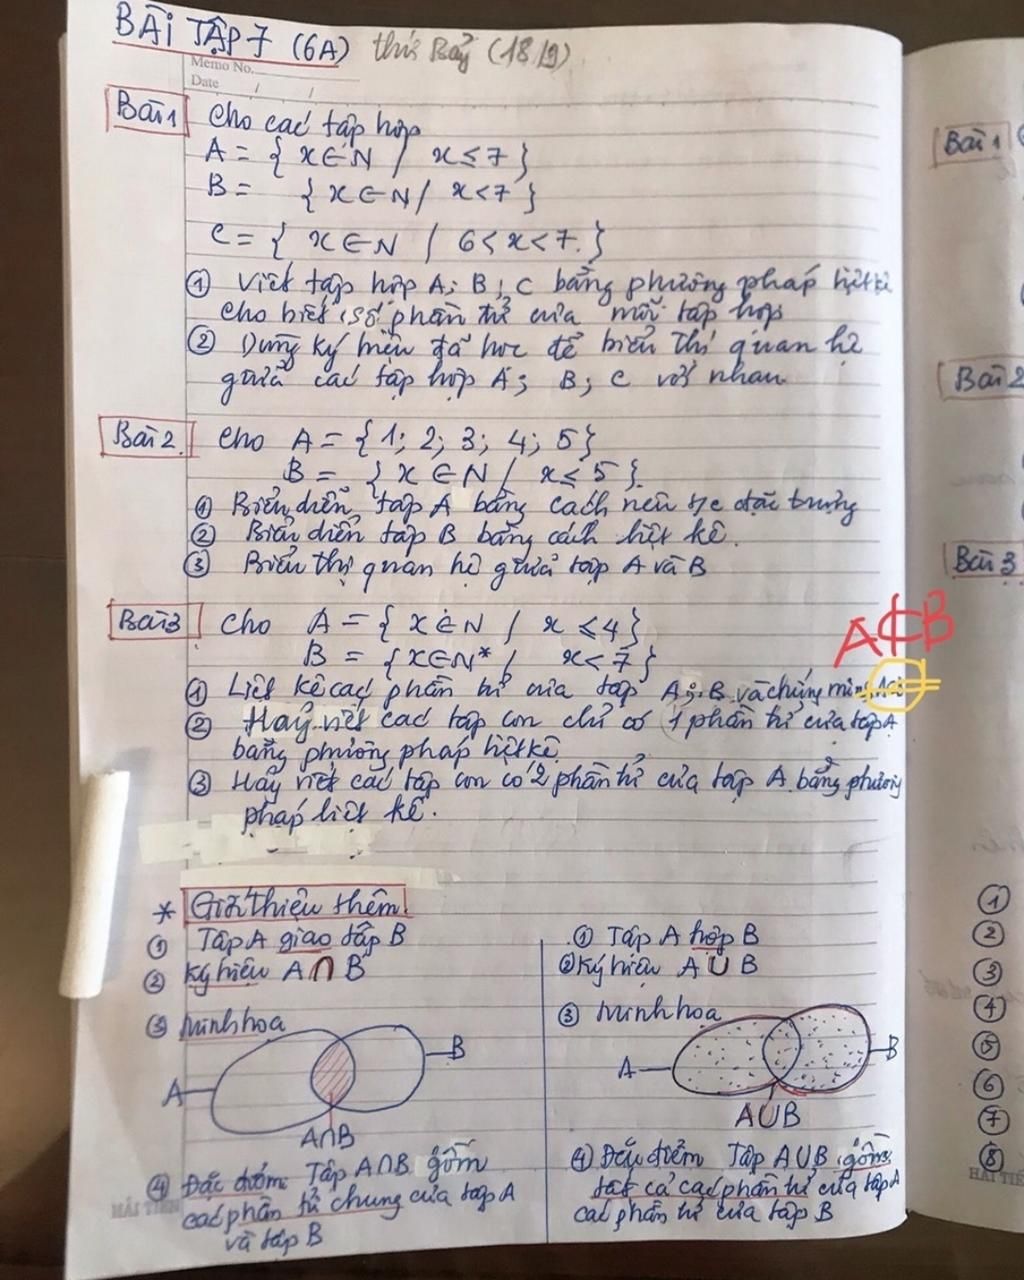 BÀI TẬP 7 (6A) thứ Bảy (18/9)
Memo No.
Date / /
Bài 1 Cho các tập hợp
A = { x ∈ N / x ≤ 7 }
B = { x ∈ N / x < 7 }
C = { x ∈ N / 6 < x < 7. }
① Viết tập hợp A; B; C bằng phương pháp liệt kê
cho biết số phần tử của mỗi tập hợp
② Dùng ký hiệu đã học để biểu thị quan hệ
giữa các tập hợp A; B; C với nhau
Bài 2 Cho A = { 1; 2; 3; 4; 5 }
B = { x ∈ N / x ≤ 5 }.
① Biểu diễn tập A bằng cách nêu t/c đặc trưng
② Biểu diễn tập B bằng cách liệt kê.
③ Biểu thị quan hệ giữa tập A và B
Bài 3 Cho A = { x ∈ N / x ≤ 4 }
A ⊄ B
B = { x ∈ N* / x < 7 }
① Liệt kê các phần tử của tập A; B và chứng minh
② Hãy viết các tập con chỉ có 1 phần tử của tập A
bằng phương pháp liệt kê
③ Hãy viết các tập con có 2 phần tử của tập A bằng phương
pháp liệt kê.
* Giới thiệu thêm.
① Tập A giao tập B
② Ký hiệu A ∩ B
③ Minh hoạ
A
B
A∩B
④ Đặc điểm: Tập A∩B gồm
các phần tử chung của tập A
và tập B
① Tập A hợp B
② Ký hiệu A ∪ B
③ Minh hoạ
A
B
A∪B
④ Đặc điểm Tập A∪B gồm
tất cả các phần tử của tập A
các phần tử của tập B
HẢI TIẾN
Bài 1
Bài 2
Bài 3
①
②
③
④
⑤
⑥
⑦
⑧
HẢI TIẾ